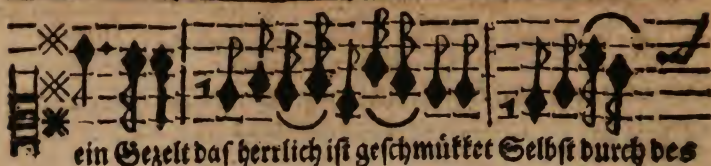 ein Gezelt das herrlich ist geschmükket Selbst durch des